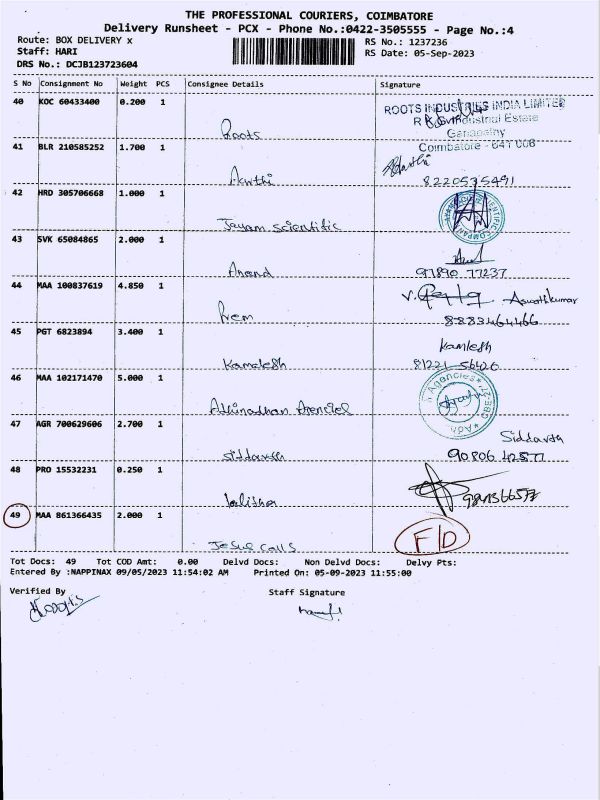 THE PROFESSIONAL COURIERS, COIMBATORE
Delivery Runsheet - PCX - Phone No.:0422-3505555 - Page No.:4
Route: BOX DELIVERY x
RS No.: 1237236
Staff: HARI
RS Date: 05-Sep-2023
DRS No.: DCJB123723604
S No Consignment No Weight PCS Consignee Details Signature
40 KOC 60433400 0.200 1
ROOTS INDUSTRIES INDIA LIMITED
Industrial Estate
Ganapathy
Roots
Coimbatore - 641 006
41 BLR 210585252 1.700 1
Aarthi
8220535491
42 HRD 305706668 1.000 1
Jayam Scientific
43 SVK 65084865 2.000 1
Anand
97890 77237
44 MAA 100837619 4.850 1
Aswathkumar
Prem
8883464466
45 PGT 6823894 3.400 1
Kamlesh
Kamalesh
81221 56426
46 MAA 102171470 5.000 1
Agencies
47 AGR 700629606 2.700 1
Siddarth
Siddarth
90806 42577
48 PRO 15532231 0.250 1
Lalitha
49 MAA 861366435 2.000 1
F/D
Jesus Calls
Tot Docs: 49 Tot COD Amt: 0.00 Delvd Docs: Non Delvd Docs: Delvy Pts:
Entered By :NAPPINAX 09/05/2023 11:54:02 AM Printed On: 05-09-2023 11:55:00
Verified By Staff Signature